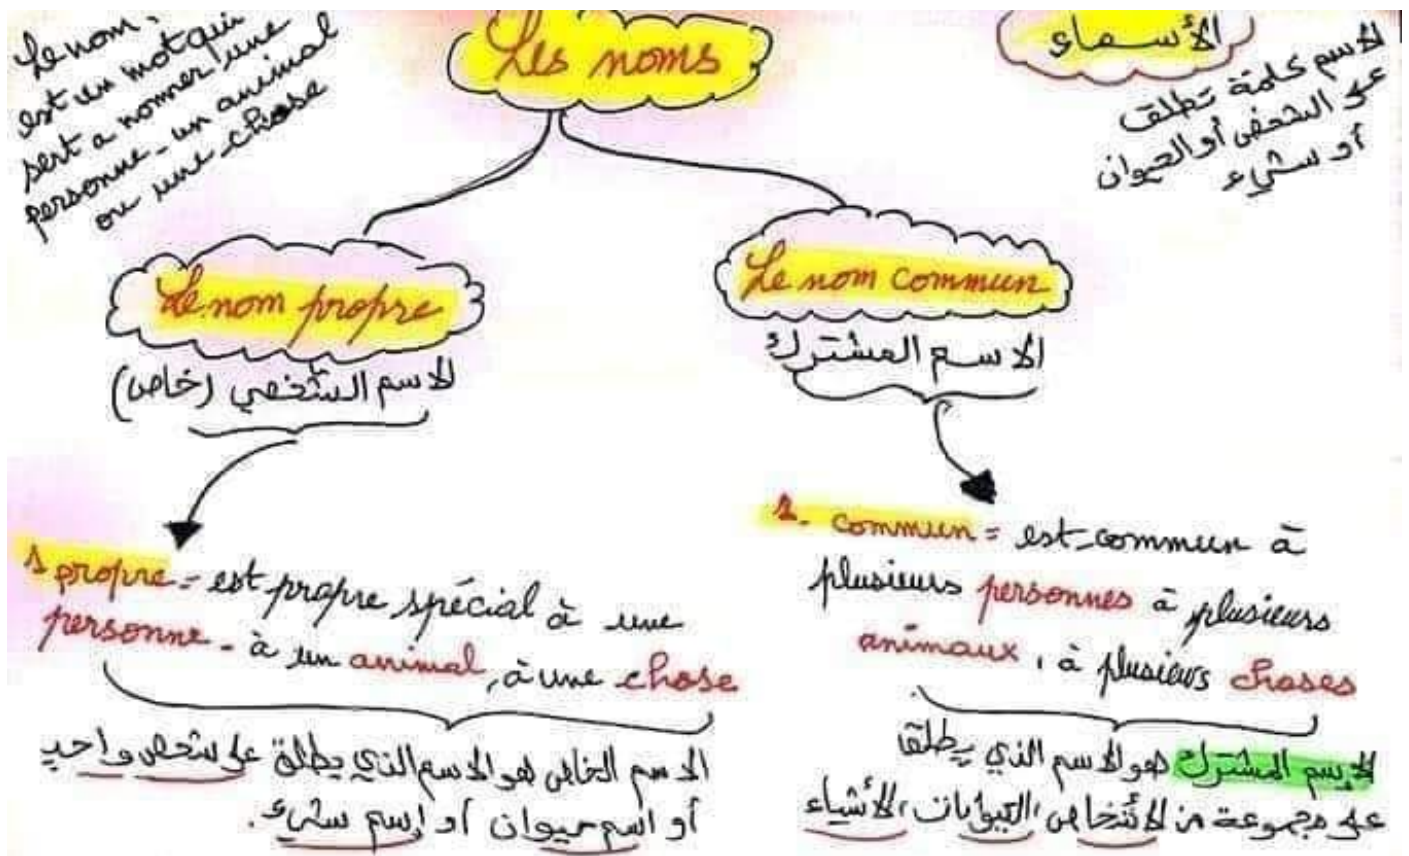 Le nom,
est un mot qui
sert a nomer une
personne - un animal
ou une chose
Les noms
الأسماء
الاسم كلمة تطلق
على الشخص أو الحيوان
أو شيء
Le nom propre
الاسم الشخصي (خاص)
Le nom commun
الاسم المشترك
1 propre = est propre spécial à une
personne - à un animal, à une chose
الاسم الخاص هو الاسم الذي يطلق على شخص واحد
أو اسم حيوان أو إسم شيء.
2 - commun = est commun à
plusieurs personnes à plusieurs
animaux, à plusieurs choses
الإسم المشترك هو الاسم الذي يطلق
على مجموعة من الأشخاص، الحيوانات، الأشياء